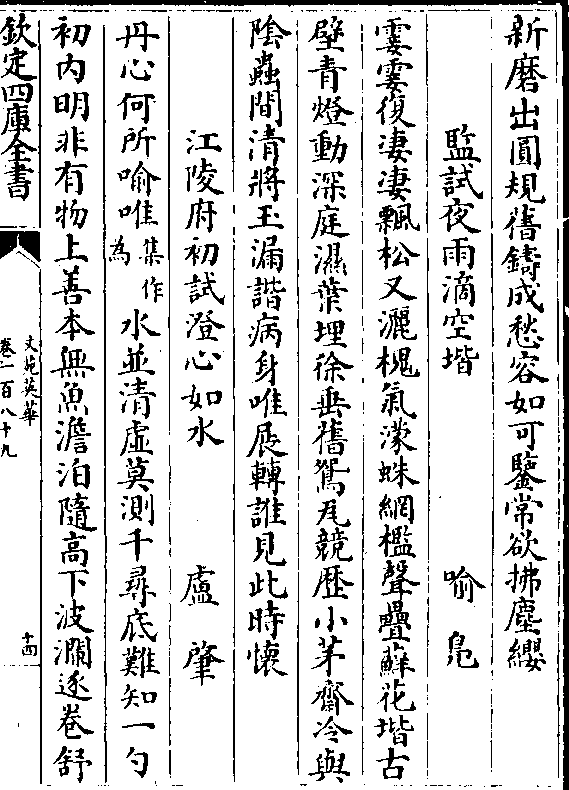 新磨出圓規舊鑄成愁容如可鑒常欲拂塵纓
監試夜雨滴空堦 喻鳧
霎霎復凄凄飄松又灑槐氣濛蛛網檻聲疊蘚花堦古
壁青燈動深庭濕葉埋徐垂舊鴛瓦競歴小茅齋冷與
陰蟲間清將玉漏諧病身唯展轉誰見此時懷
江陵府初試澄心如水 盧肇
丹心何所喻唯集作為水並清虛莫測千尋底難知一勺
初内明非有物上善本無魚澹泊隨高下波瀾逐卷舒
欽定四庫全書
文苑英華
卷一百八十九
十四